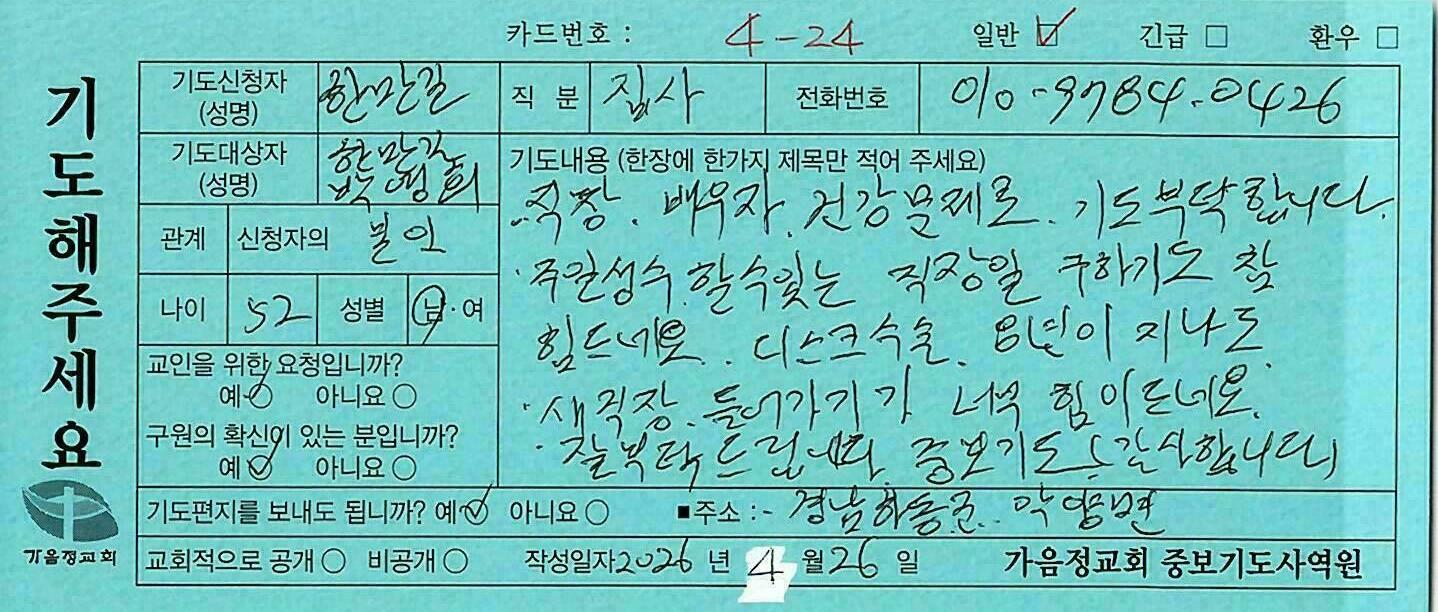 카드번호 : 4-24 일반 ☑ 긴급 □ 환우 □
기도해주세요
기도신청자 (성명) 한만길 직 분 집사 전화번호 010-9784-0426
기도대상자 (성명) 한만길 박영희
기도내용 (한장에 한가지 제목만 적어 주세요)
직장. 배우자. 건강문제로. 기도부탁합니다.
관계 신청자의 본인
· 주일성수 할수있는 직장일 구하기도 참
나이 52 성별 남·여
힘드네요. 디스크수술. 8년이 지나도.
교인을 위한 요청입니까?
예 ○ 아니요 ○
· 새직장. 들어가기가 너무 힘이드네요.
구원의 확신이 있는 분입니까?
예 ○ 아니요 ○
· 잘부탁드립니다. 중보기도 감사합니다
기도편지를 보내도 됩니까? 예 ○ 아니요 ○ ■주소 : - 경남하동군.. 악양면
가음정교회
교회적으로 공개 ○ 비공개 ○ 작성일자 2026 년 4 월 26 일 가음정교회 중보기도사역원